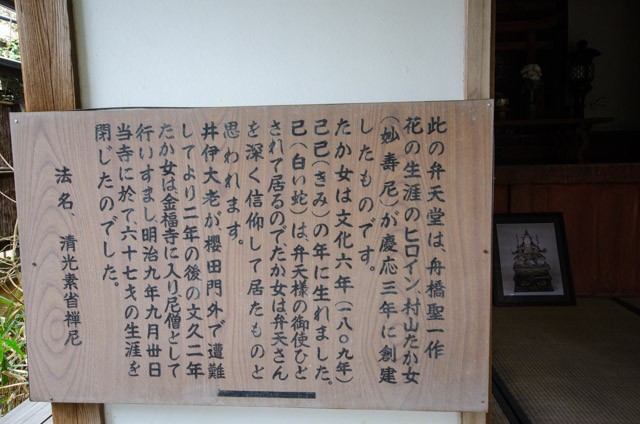 此の弁天堂は、舟橋聖一作
花の生涯のヒロイン、村山たか女
(妙壽尼)が慶応三年に創建
したものです。
たか女は文化六年(一八〇九年)
己己(きみ)の年に生れました。
己(白い蛇)は、弁天様の御使ひと
されて居るので、たか女は弁天さん
を深く信仰して居たものと
思われます。
井伊大老が、櫻田門外で遭難
してより二年の後の文久二年
たか女は金福寺に入り尼僧として
行いすまし、明治九年九月丗日
当寺に於て六十七才の生涯を
閉じたのでした。
法名、清光素省禅尼